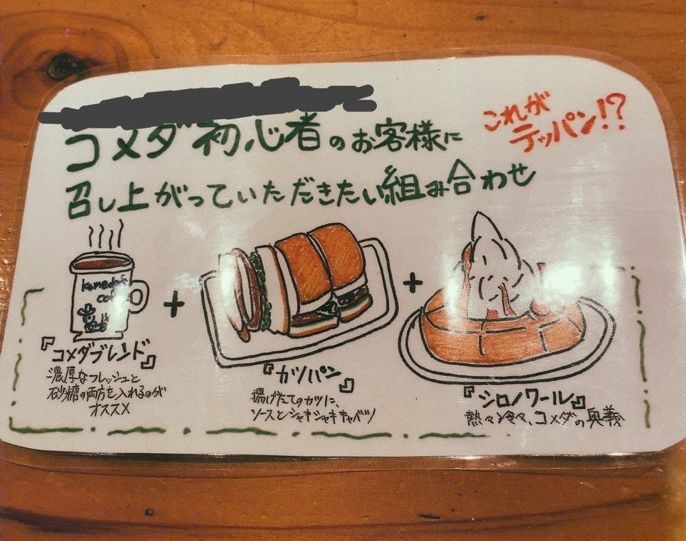 コメダ初心者のお客様に
これが
テッパン!?
召し上がっていただきたい組み合わせ
komeda's
coffee
+
+
『コメダブレンド』
濃厚なフレッシュと
砂糖の両方を入れるのが
オススメ
『カツパン』
揚げたてのカツに、
ソースとシャキシャキキャベツ
『シロノワール』
熱々冷々、コメダの奥義